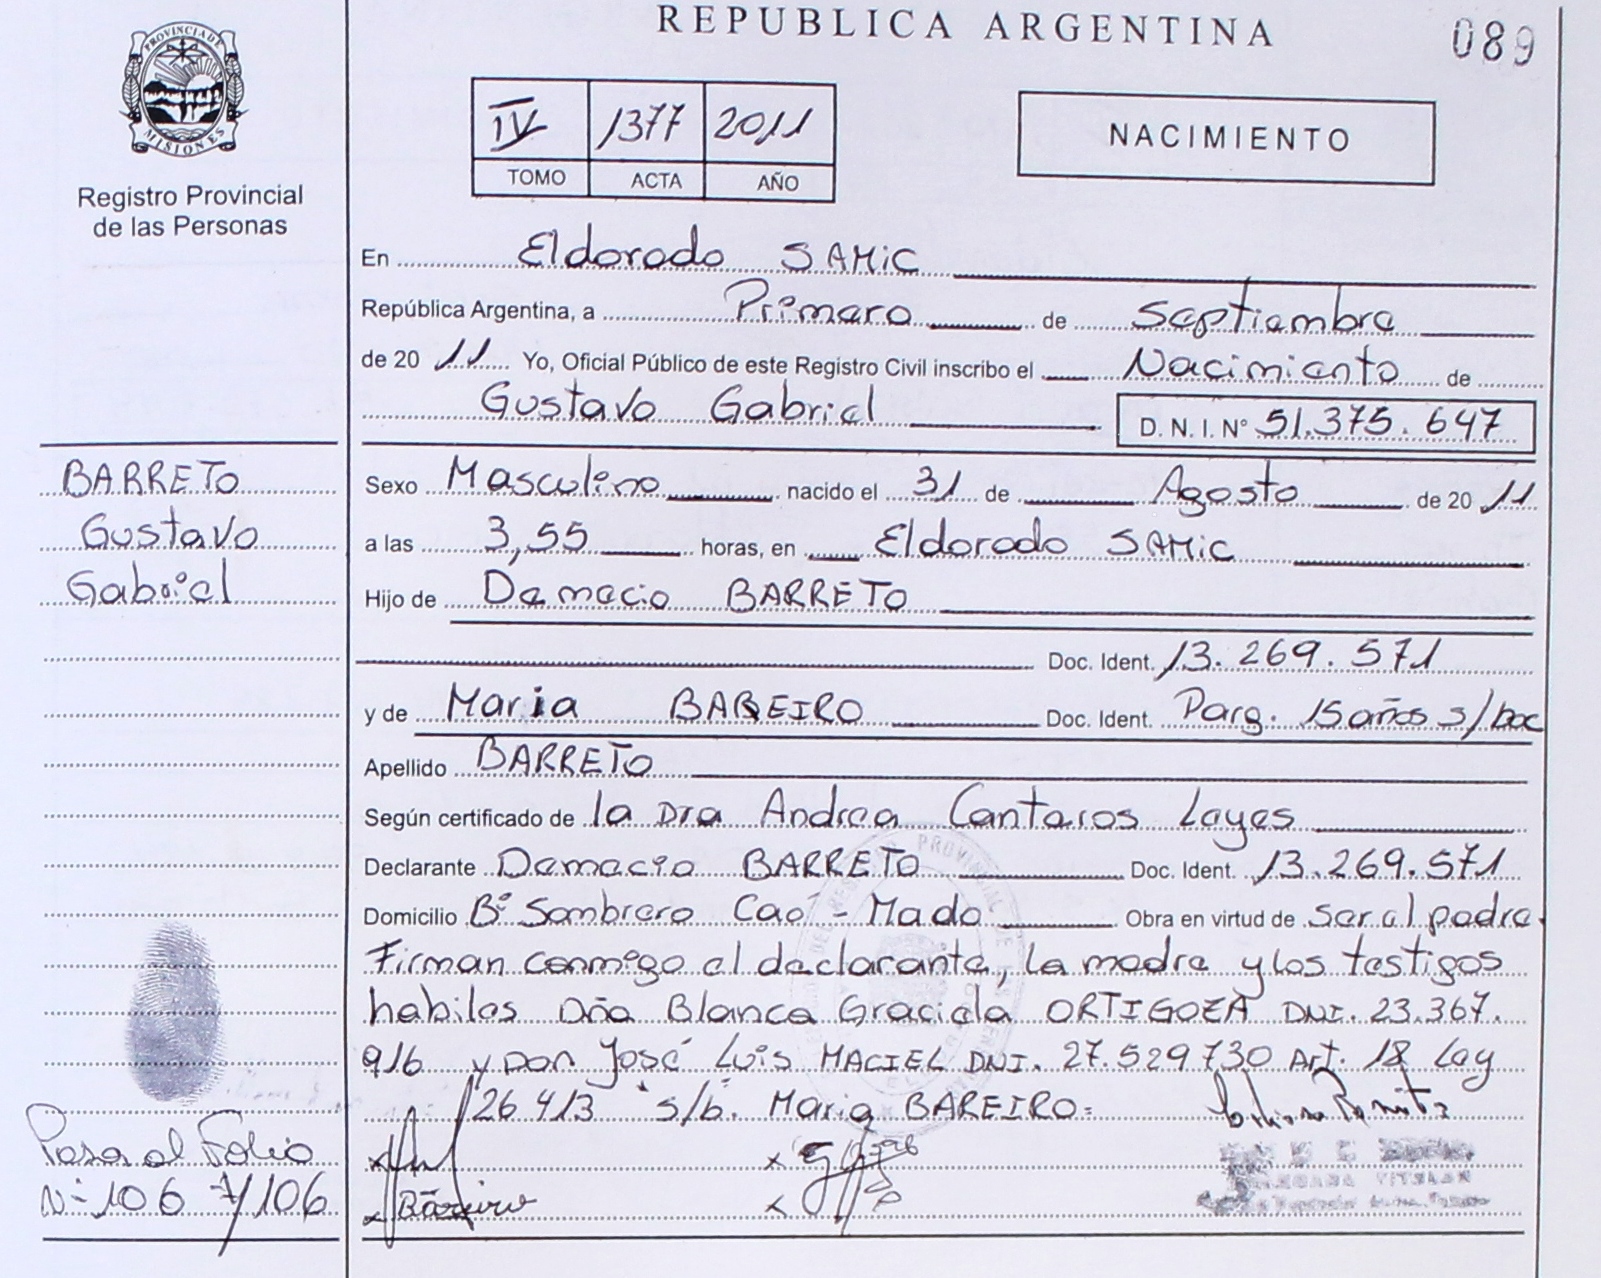 REPUBLICA ARGENTINA
089
PROVINCIA DE MISIONES
Registro Provincial
de las Personas
IV 1377 2011
TOMO ACTA AÑO
NACIMIENTO
En Eldorado SAMIC
República Argentina, a Primero de Septiembre
de 20 11 Yo, Oficial Público de este Registro Civil inscribo el Nacimiento de
Gustavo Gabriel D. N. I. N° 51.375.647
BARRETO
Gustavo
Gabriel
Sexo Masculino nacido el 31 de Agosto de 20 11
a las 3,55 horas, en Eldorado SAMIC
Hijo de Damacio BARRETO
Doc. Ident. 13.269.571
y de Maria BAREIRO Doc. Ident. Parg. 15 años s/Doc
Apellido BARRETO
Según certificado de la Dra Andrea Canteros Leyes
Declarante Damacio BARRETO Doc. Ident. 13.269.571
Domicilio Bº Sombrero Cao - Mado Obra en virtud de ser el padre.
Firman conmigo el declarante, la madre y los testigos
habiles Dña Blanca Graciela ORTIGOZA DNI. 23.367.
916 y Don José Luis MACIEL DNI. 27.529730 Art. 18 Ley
26413 s/b. Maria BAREIRO=
x
x
x Bareiro
x
Pasa al Folio
Nº 106 //106